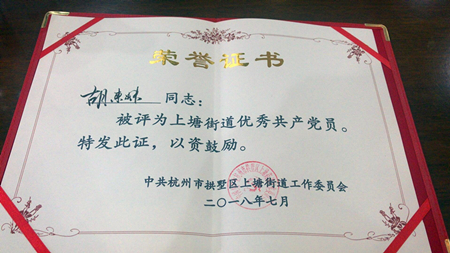 荣誉证书
胡东妹同志：
被评为上塘街道优秀共产党员。
特发此证，以资鼓励。
中共杭州市拱墅区上塘街道工作委员会
二〇一八年七月